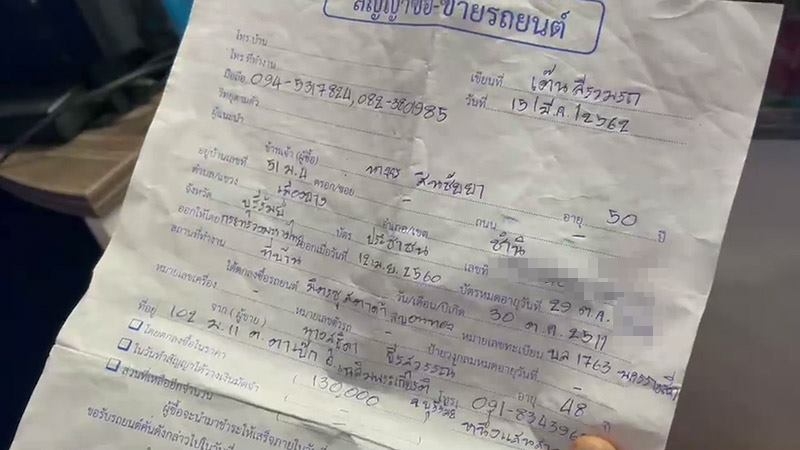 สัญญาซื้อ-ขายรถยนต์
โทร.บ้าน
โทร.ที่ทำงาน เขียนที่
มือถือ 094-5317824, 082-3801985 วันที่ 15/มี.ค./2562
วิทยุตามตัว
ผู้แนะนำ
ข้าพเจ้า (ผู้ซื้อ) อายุ 50 ปี
อยู่บ้านเลขที่ 51 ม.4 ตรอก/ซอย - ถนน -
ตำบล/แขวง เมืองยาง อำเภอ/เขต ชำนิ
จังหวัด บุรีรัมย์ บัตร ประชาชน เลขที่
ออกให้โดย ออกเมื่อวันที่ 12 เม.ย. 2560 บัตรหมดอายุวันที่ 29 ต.ค.
สถานที่ทำงาน ที่บ้าน วัน/เดือน/ปีเกิด 30 ต.ค. 2511
ได้ตกลงซื้อรถยนต์ หมายเลขทะเบียน 1763
หมายเลขเครื่อง - หมายเลขตัวรถ - ป้ายวงกลมหมดอายุวันที่ -
จาก (ผู้ขาย) อายุ 48 ปี
ที่อยู่ 102 ม.11 ต.ตาเป๊ก อ.เฉลิมพระเกียรติ จ.บุรีรัมย์ โทร. 091-834396
โดยตกลงซื้อในราคา 130,000
ในวันทำสัญญาได้วางเงินมัดจำ -
ส่วนที่เหลืออีกจำนวน
ผู้ซื้อจะนำมาชำระให้เสร็จภายในวันที่
ขอรับรถยนต์คันดังกล่าวไปในวันที่